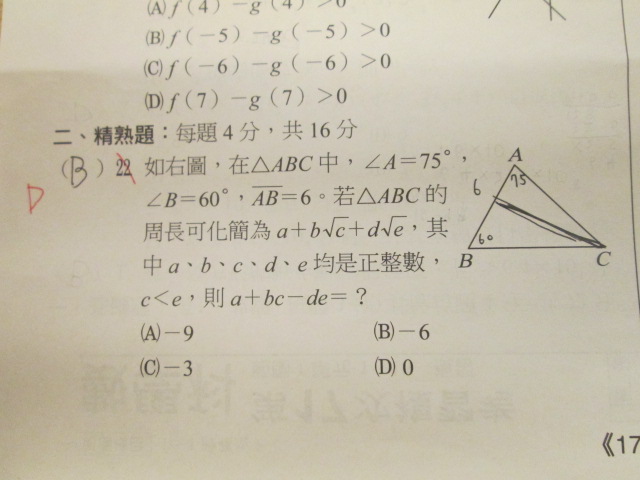 (A) f(4)-g(4)>0
(B) f(-5)-g(-5)>0
(C) f(-6)-g(-6)>0
(D) f(7)-g(7)>0
二、精熟題：每題4分，共16分
(B) 22 如右圖，在△ABC中，∠A=75°，
D
∠B=60°，AB=6。若△ABC的
周長可化簡為a+b√c+d√e，其
中a、b、c、d、e均是正整數，
c<e，則a+bc-de=？
(A)-9 (B)-6
(C)-3 (D) 0
A
75
6
60
B C
《17